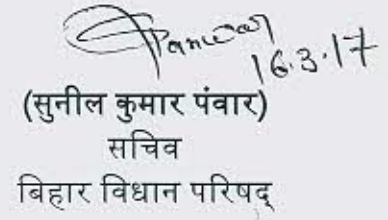 Panwar
16.3.17
(सुनील कुमार पंवार)
सचिव
बिहार विधान परिषद्